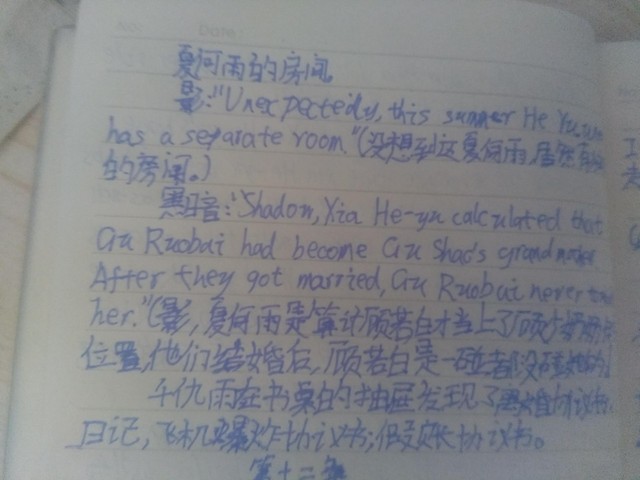 夏何雨的房间。
影:"Unexpectedly, this summer He Yu
has a separate room."(没想到这夏何雨,居然有
的房间。)
黑暗:"Shadow, Xia He-yu calculated that
Gu Ruobai had become Gu Shao's grand
After they got married, Gu Ruobai never
her."(影,夏何雨是算计顾若白才当上了顾少
位置,他们结婚后,顾若白是一碰都没碰她的
千仇雨在书桌的抽屉发现了离婚协议书,
日记,飞机爆炸协议书;假死协议书。
第十二